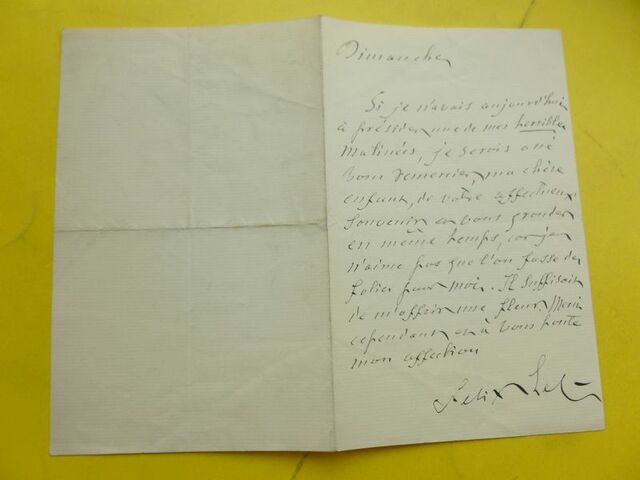 Dimanche
Si je n'avais aujourd'hui
à présider une de mes horribles
matinées, je serois allé
vous remercier, ma chère
enfant, de votre affectueux
souvenir et vous gronder
en même temps, car je
n'aime pas que l'on fasse des
folies pour moi. Il suffisoit
de m'offrir une fleur. Merci
cependant et à vous toute
mon affection
Félix